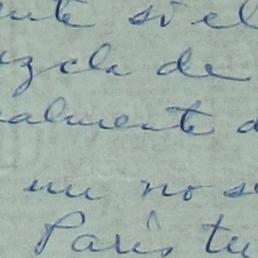 nte si el
ezcla de
almente d
un no s
París tu